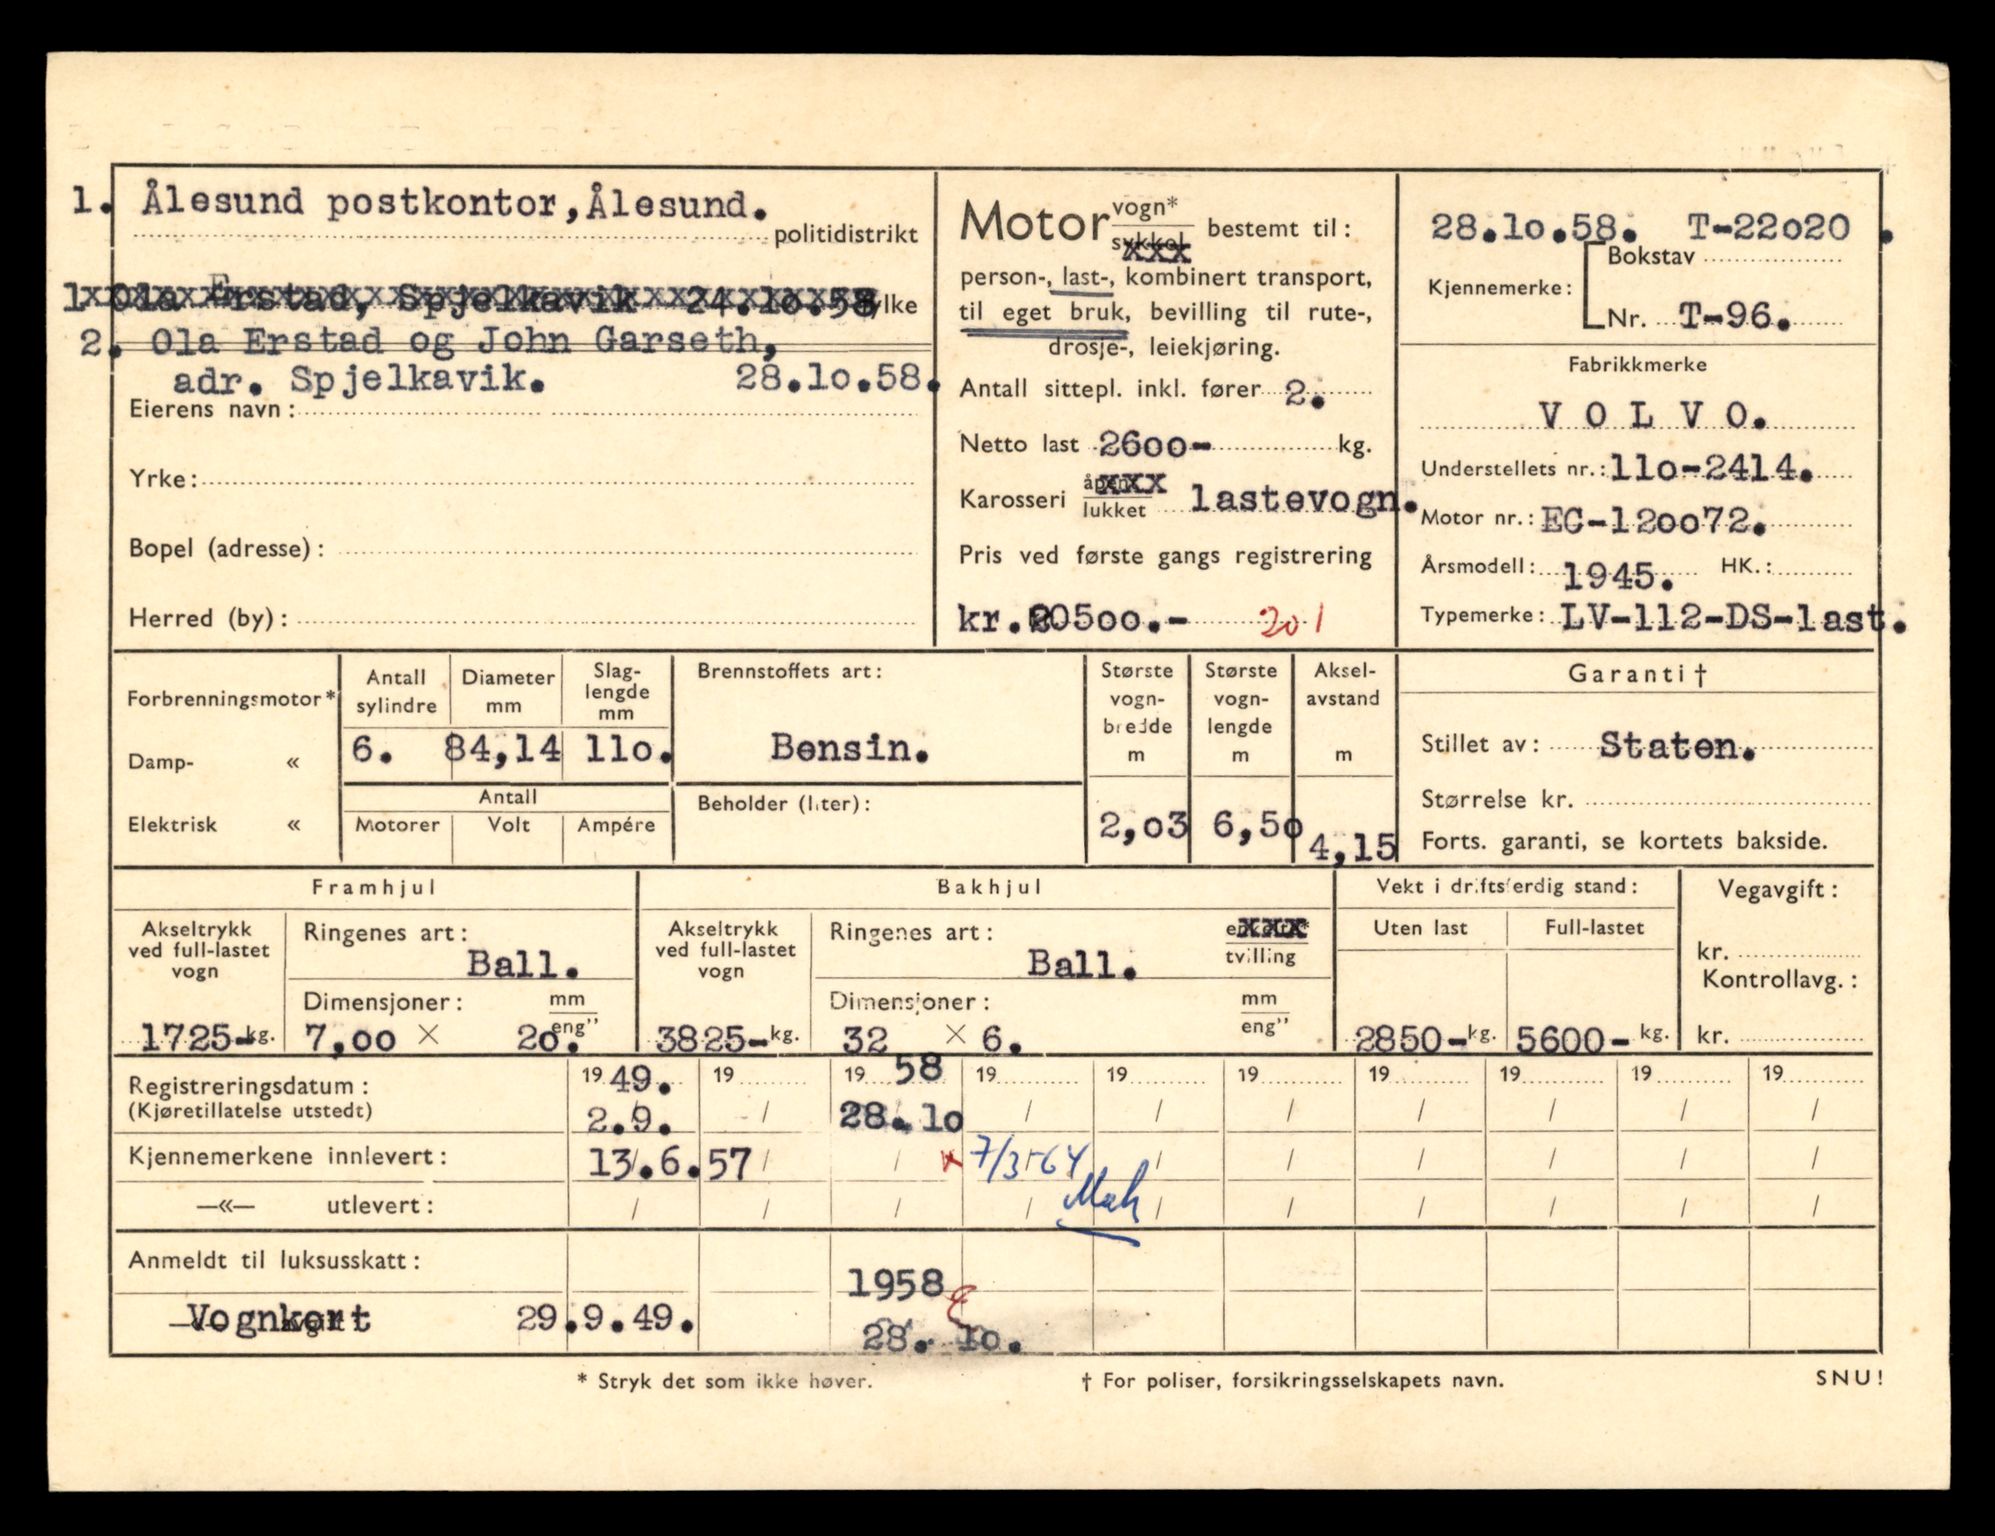 1. Ålesund postkontor, Ålesund.
politidistrikt
1 Ola Erstad, Spjelkavik 24.10.58 fylke
2. Ola Erstad og John Garseth,
adr. Spjelkavik. 28.10.58.
Eierens navn:
Yrke:
Bopel (adresse):
Herred (by):
Motor vogn* sykkel xxx bestemt til:
person-, last-, kombinert transport,
til eget bruk, bevilling til rute-,
drosje-, leiekjøring.
Antall sittepl. inkl. fører 2.
Netto last 2600- kg.
Karosseri åpent xxx lukket lastevogn.
Pris ved første gangs registrering
kr. 20500.- 201
28.10.58. T-22020.
Kjennemerke: Bokstav
Nr. T-96.
Fabrikkmerke
VOLVO.
Understellets nr.: 110-2414.
Motor nr.: EC-120072.
Årsmodell: 1945. HK.:
Typemerke: LV-112-DS-last.
Forbrenningsmotor*
Damp- «
Elektrisk «
Antall sylindre
6.
Diameter mm
84,14
Slag-lengde mm
110.
Antall
Motorer Volt Ampére
Brennstoffets art:
Bensin.
Beholder (liter):
Største vogn-bredde m
2,03
Største vogn-lengde m
6,50
Aksel-avstand m
4,15
Garanti †
Stillet av: Staten.
Størrelse kr.
Forts. garanti, se kortets bakside.
Framhjul
Akseltrykk ved full-lastet vogn
1725- kg.
Ringenes art:
Ball.
Dimensjoner: mm eng"
7,00 × 20.
Bakhjul
Akseltrykk ved full-lastet vogn
3825- kg.
Ringenes art: enkelt* xxx tvilling
Ball.
Dimensjoner: mm eng"
32 × 6.
Vekt i driftsferdig stand:
Uten last Full-lastet
2850- kg. 5600- kg.
Vegavgift:
kr.
Kontrollavg.:
kr.
Registreringsdatum: 1949. 19 19 58 19 19 19 19 19 19 19
(Kjøretillatelse utstedt) 2.9. / 28.10 / / / / / / /
Kjennemerkene innlevert: 13.6.57 / / x 7/3-64 / / / / / /
—«— utlevert: / / / / / / / / / /
Anmeldt til luksusskatt: 1958
Vognkort 29.9.49. 28. 10.
* Stryk det som ikke høver. † For poliser, forsikringsselskapets navn. SNU!